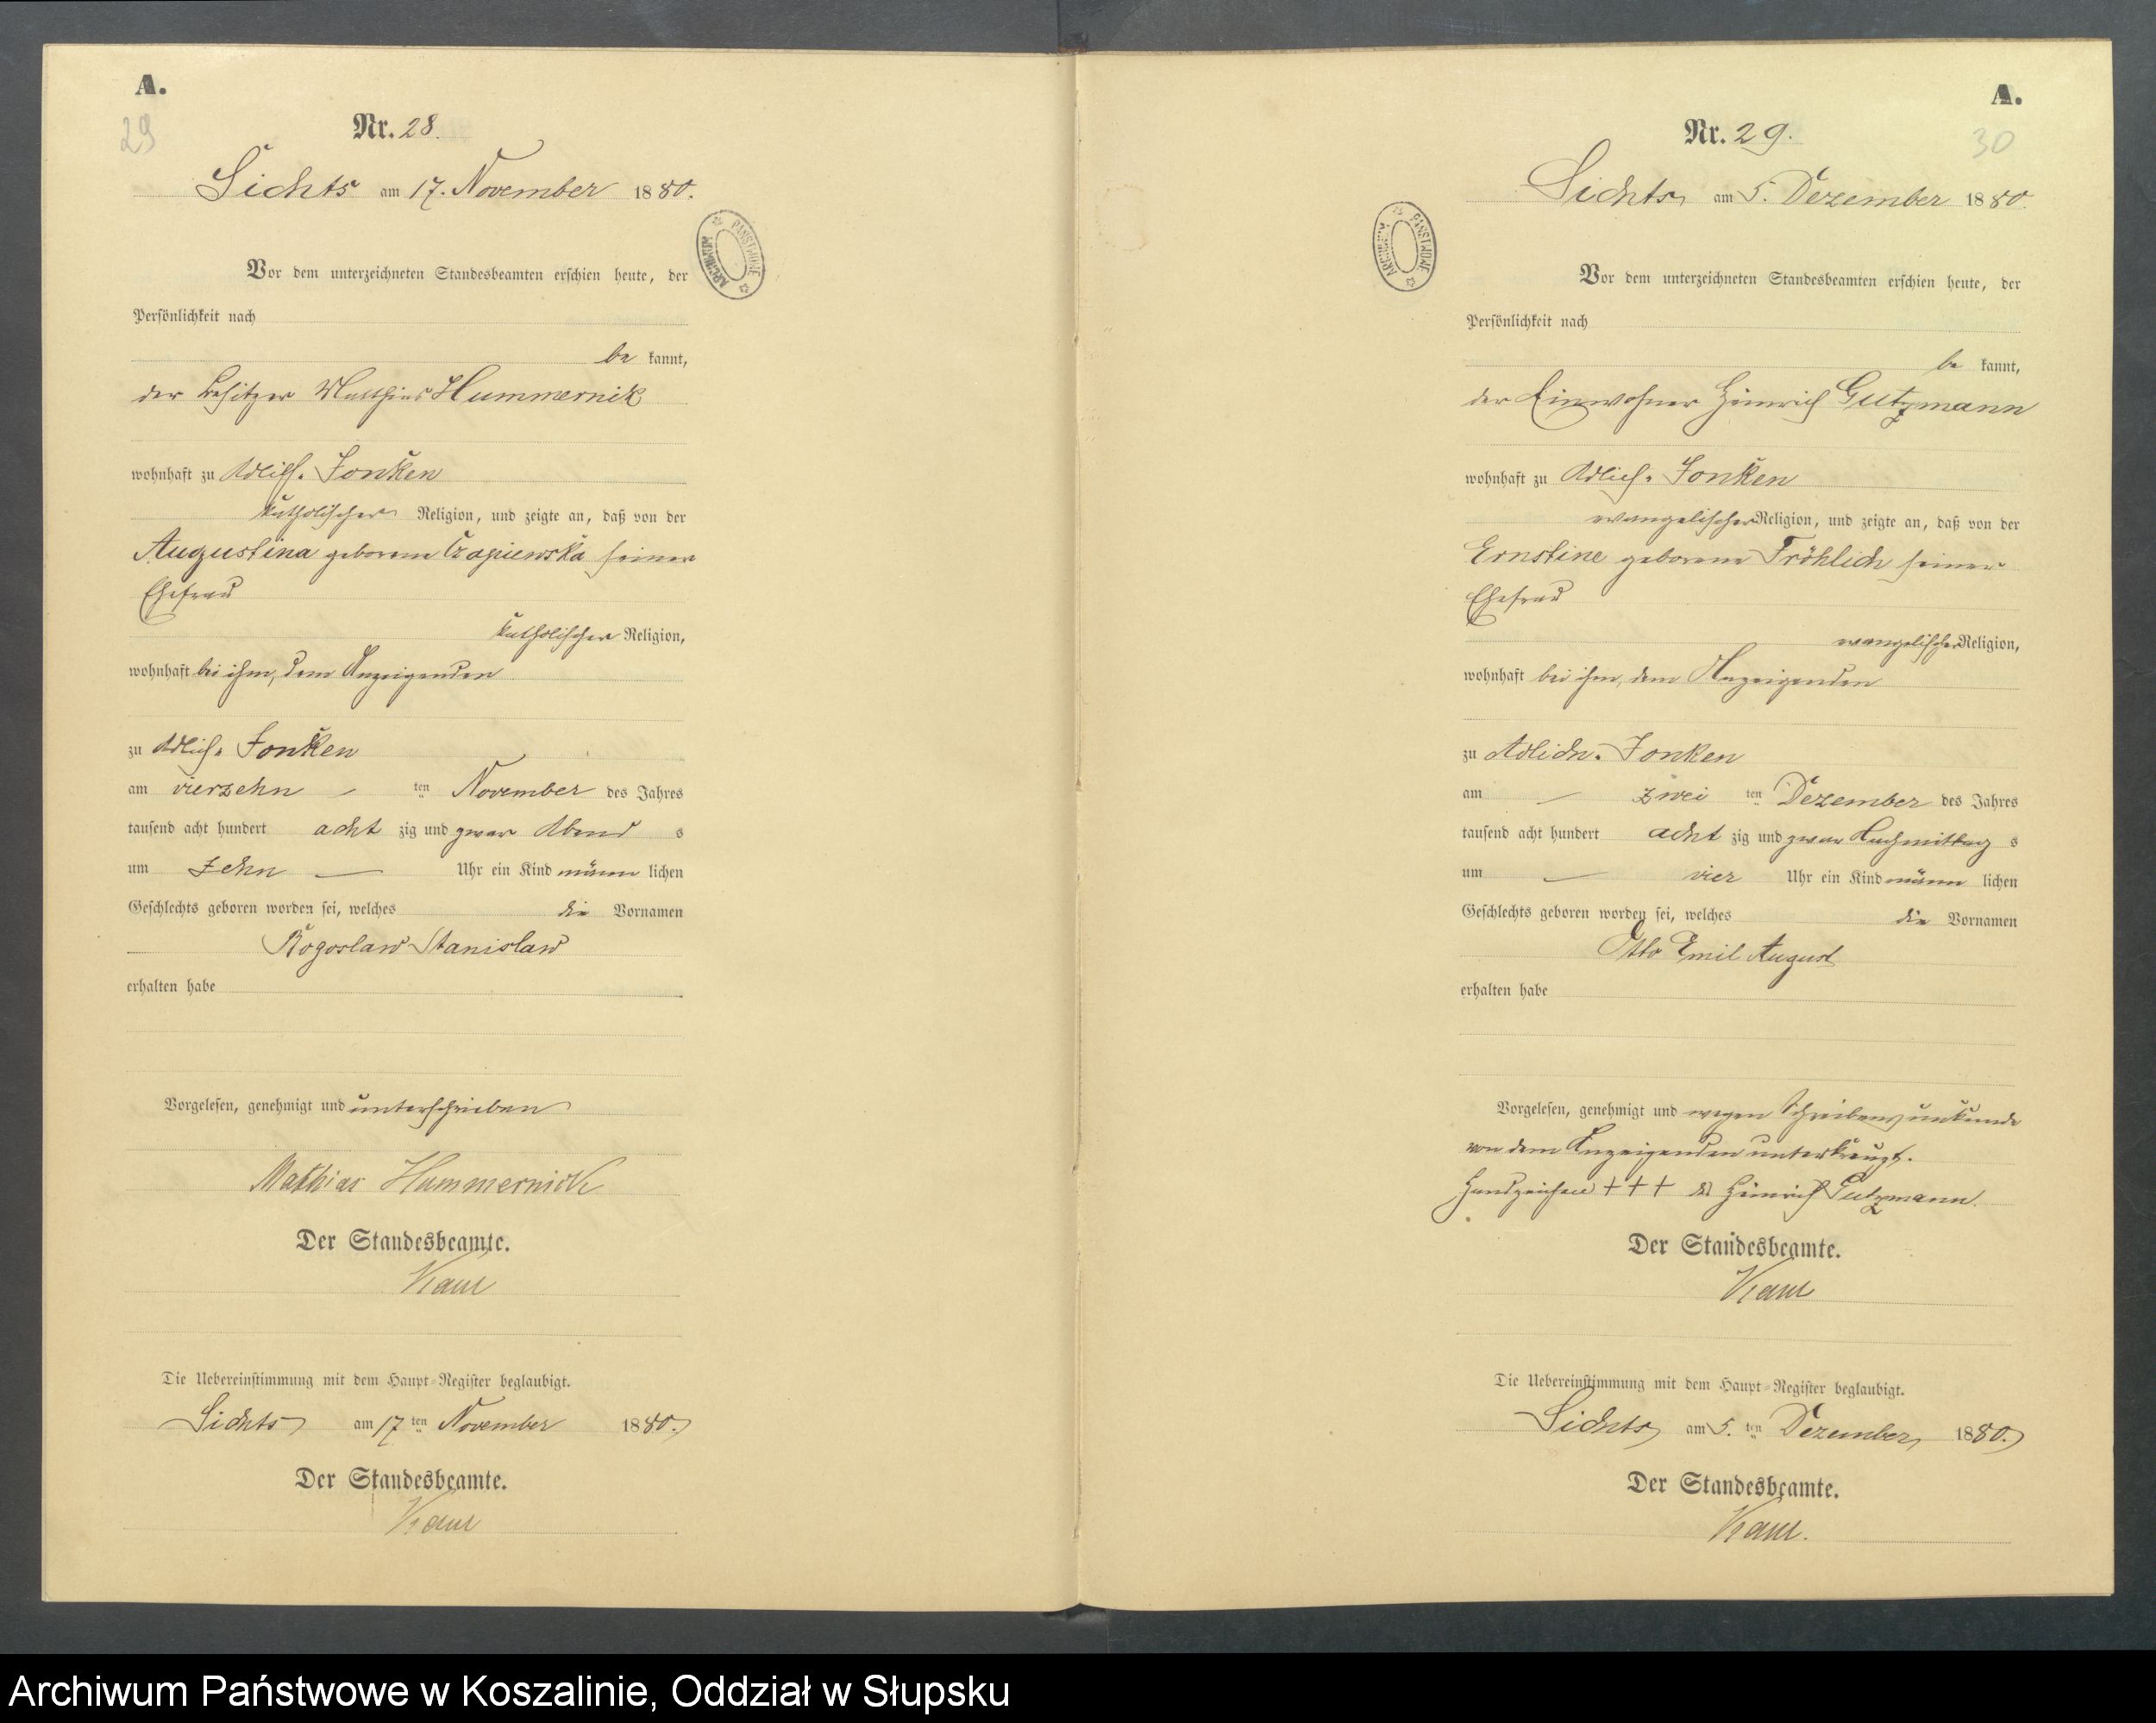 A.
29
Nr. 28.
Lichts am 17. November 1880.
Vor dem unterzeichneten Standesbeamten erschien heute, der
Persönlichkeit nach
be kannt,
der Besitzer Mathias Hummernik
wohnhaft zu Adlich. Jonken
katholischer Religion, und zeigte an, daß von der
Augustina geborene Czapiewska seiner
Ehefrau
katholischer Religion,
wohnhaft bei ihm, dem Anzeigenden
zu Adlich. Jonken
am vierzehn ten November des Jahres
tausend acht hundert acht zig und zwar Abend s
um zehn Uhr ein Kind männ lichen
Geschlechts geboren worden sei, welches die Vornamen
Bogoslaw Stanislaw
erhalten habe
Vorgelesen, genehmigt und unterschrieben
Mathias Hummernick
Der Standesbeamte.
Die Uebereinstimmung mit dem Haupt-Register beglaubigt.
Lichts am 17 ten November 1880.
Der Standesbeamte.
ARCHIWUM PAŃSTWOWE
A.
30
Nr. 29.
Lichts am 5. Dezember 1880.
Vor dem unterzeichneten Standesbeamten erschien heute, der
Persönlichkeit nach
be kannt,
der Einwohner Heinrich Gutzmann
wohnhaft zu Adlich. Jonken
evangelischer Religion, und zeigte an, daß von der
Ernstine geborene Fröhlich seiner
Ehefrau
evangelischer Religion,
wohnhaft bei ihm, dem Anzeigenden
zu Adlich. Jonken
am zwei ten Dezember des Jahres
tausend acht hundert acht zig und zwar Nachmittag s
um vier Uhr ein Kind männ lichen
Geschlechts geboren worden sei, welches die Vornamen
Otto Emil August
erhalten habe
Vorgelesen, genehmigt und wegen Schreibensunkunde
von dem Anzeigenden unterkreuzt.
Handzeichen + + + des Heinrich Gutzmann.
Der Standesbeamte.
Die Uebereinstimmung mit dem Haupt-Register beglaubigt.
Lichts am 5. ten Dezember 1880.
Der Standesbeamte.
ARCHIWUM PAŃSTWOWE
Archiwum Państwowe w Koszalinie, Oddział w Słupsku